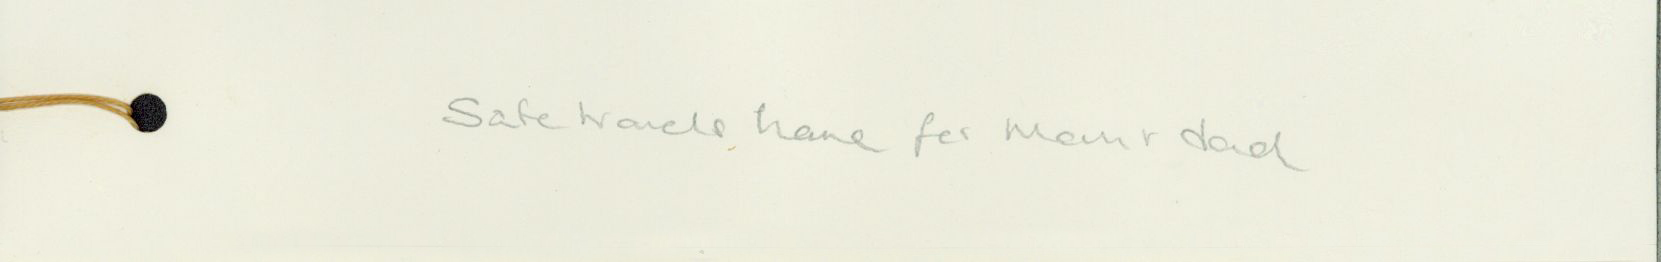 Safe travels home for Mom + dad